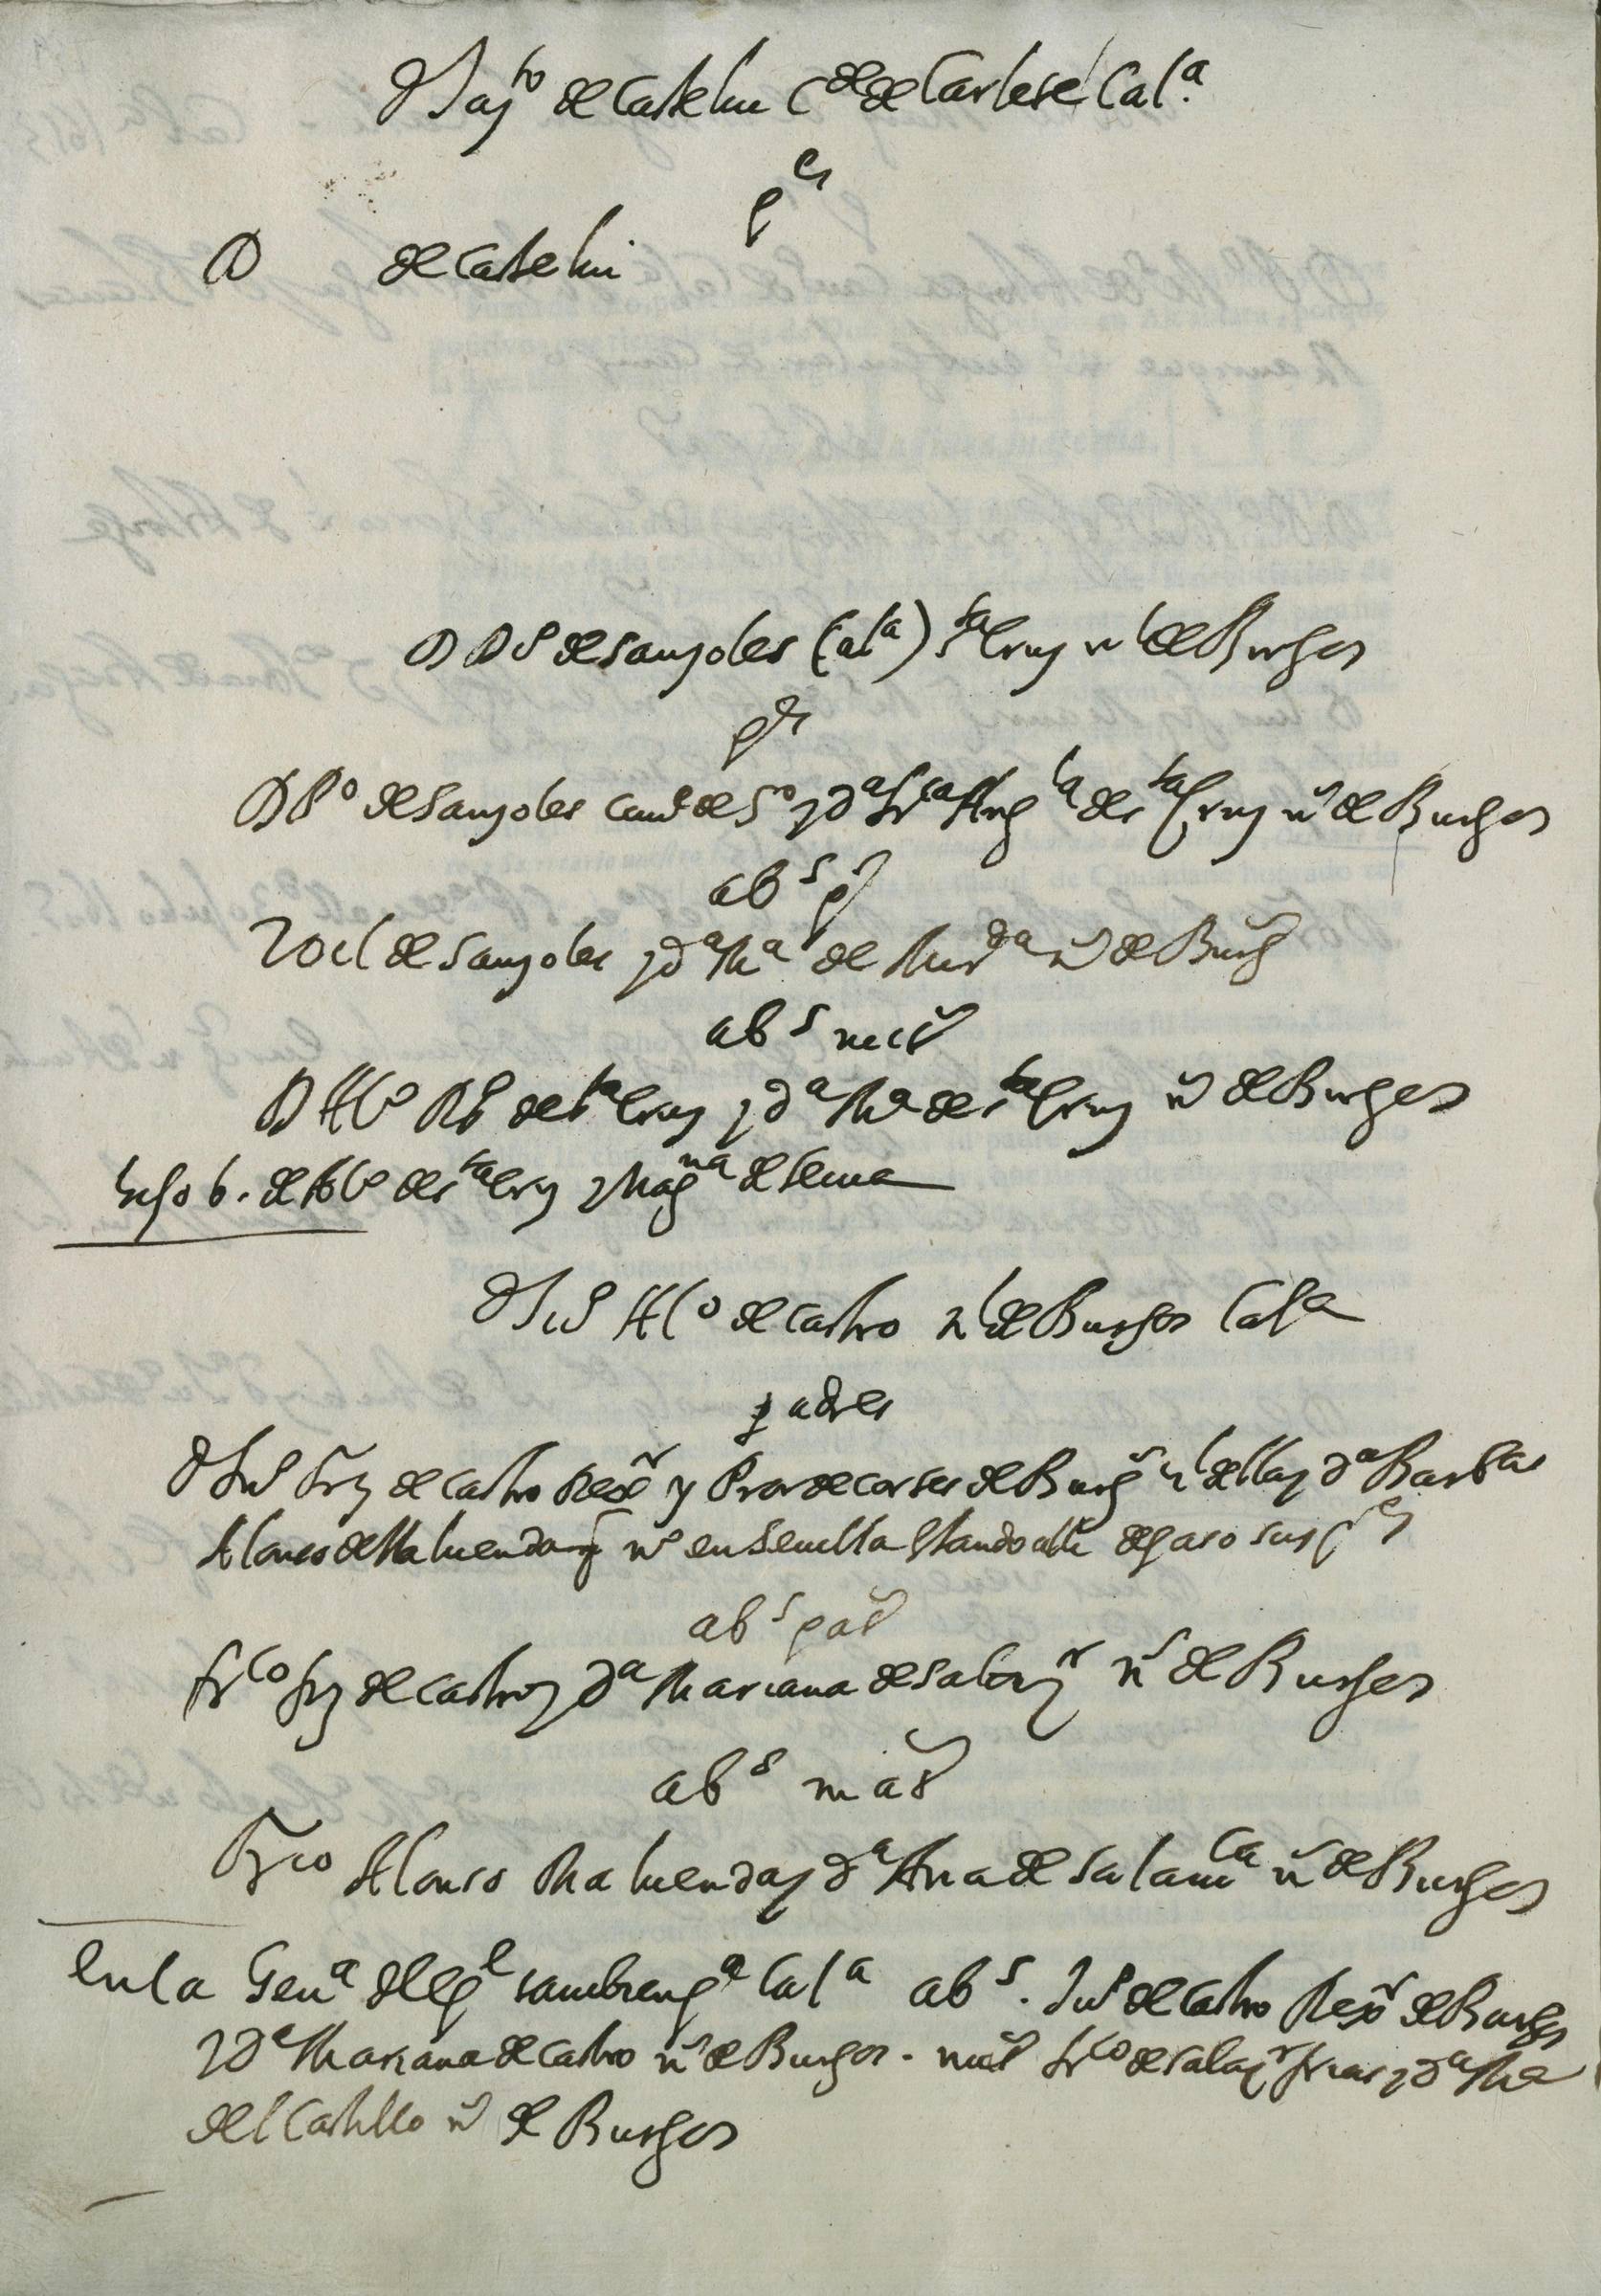 D Jay^to de Castelui C^de de Carlet Cal^a
p^es
D de Castelui
D D^o de Sanzoles Cal^a S^ta Cruz n^l de Burgos
p^es
D P^o de Sanzoles Cau^o de S^o y d^a Fr^ca de S^ta Cruz n^s de Burgos
ab^s p^s
de Sanzoles y d^a M^a de n^s de Burg^s
ab^s mat^s
D Al^o de S^ta Cruz y d^a M^a de S^ta Cruz n^s de Burgos
hijo b. de Al^o de S^ta Cruz y Mag^na de Lerma
D Ju^o Al^o de Castro n^l de Burgos Cal^a
padres
D Ju^o Frz de Castro Reg^or y Pro^r de Cortes de Burg^s n^l della y d^a Barb^la
Alonso de Maluenda n^o en Seuilla estando alli de paso sus p^es
ab^s pat^s
Fr^co frz de Castro y d^a Mariana de Salaz^r n^s de Burgos
ab^s mat^s
Fr^co Alonso Maluenda y d^a Ana de Salam^ca n^s de Burgos
en la Gen^a del Cal^a ab^s. Ju^o de Castro Reg^or de Burgos
y d^a Mariana de Castro n^s de Burgos. mat^s Fr^co de Salaz^r frias y d^a M^a
del Castillo n^s de Burgos